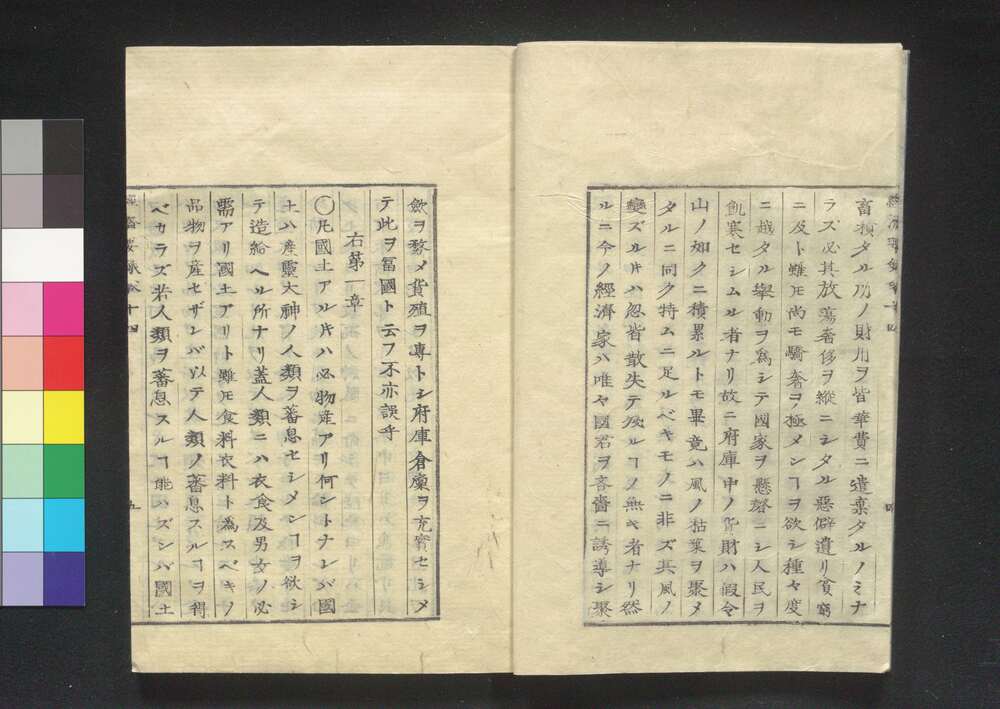 畜積タル所ノ財用ヲ皆華費ニ遣棄タルノミナ
ラズ必其放蕩奢侈ヲ縦ニシタル惡僻遺リ貧窮
ニ及ト雖𪜈尚モ驕奢ヲ極メンヿヲ欲シ種々度
ニ越タル擧動ヲ爲シテ國家ヲ懸磬ニシ人民ヲ
飢寒セシムル者ナリ故ニ府庫中ノ貨財ハ假令
山ノ如クニ積累ルトモ畢竟ハ風ノ枯葉ヲ聚メ
タルニ同ク特ムニ足ルベキモノニ非ズ其風ノ
變ズル片ハ忽皆散失テ殘ルヿノ無キ者ナリ然
ルニ今ノ經濟家ハ唯々國君ヲ吝嗇ニ誘導シ聚
斂ヲ務メ貨殖ヲ專トシ府庫倉廩ヲ充實セシメ
テ此ヲ冨國ト云フ不亦誤乎
右第一章
〇凡國土アル片ハ必物産アリ何ントナレバ國
土ハ産靈大神ノ人類ヲ蕃息セシメンヿヲ欲シ
テ造給ヘル所ナリ蓋人類ニハ衣食及男女ノ必
需アリ國土アリト雖𪜈食料衣料ト為スベキノ
品物ヲ産セザレバ以テ人類ノ蕃息スルヿヲ得
ベカラズ若人類ヲ蕃息スルヿ能ハズンバ國土
五